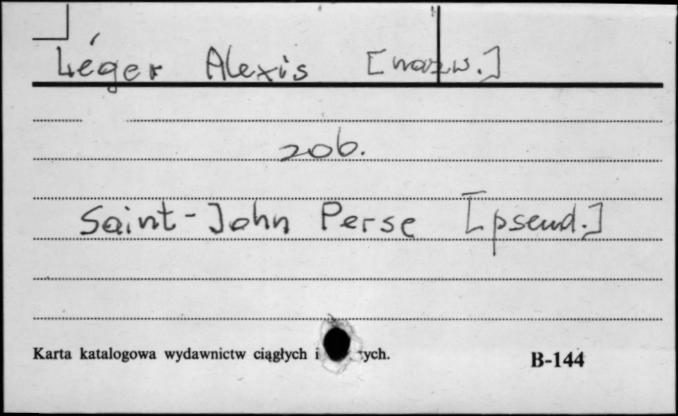 Léger Alexis [nazw.]
zob.
Saint-John Perse [pseud.]
Karta katalogowa wydawnictw ciągłych i
B-144